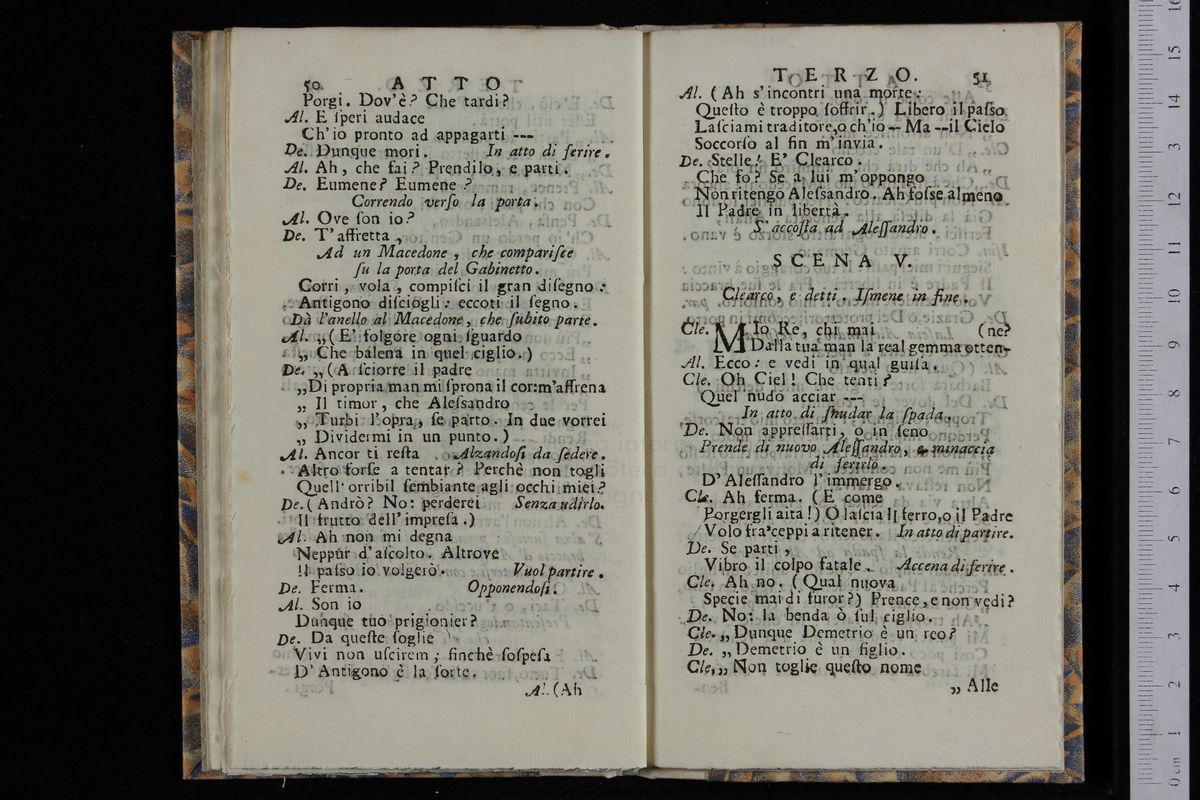 50 ATTO
Porgi. Dov'è? Che tardi?
Al. E ſperi audace
Ch'io pronto ad appagarti ---
De. Dunque mori. In atto di ferire.
Al. Ah, che fai? Prendilo, e parti.
De. Eumene? Eumene?
Correndo verſo la porta.
Al. Ove ſon io?
De. T'affretta,
Ad un Macedone, che compariſce
ſu la porta del Gabinetto.
Corri, vola, compiſci il gran diſegno:
Antigono diſciogli: eccoti il ſegno.
Dà l'anello al Macedone, che ſubito parte.
Al. „(E' folgore ogni ſguardo
„ Che balena in quel ciglio.)
De. „(A ſciorre il padre
„Di propria man mi ſprona il cor:m'affrena
„ Il timor, che Aleſsandro
„ Turbi l'opra, ſe parto. In due vorrei
„ Dividermi in un punto.)
Al. Ancor ti reſta Alzandoſi da ſedere.
Altro forſe a tentar? Perchè non togli
Quell' orribil ſembiante agli occhi miei?
De. (Andrò? No: perderei Senza udirlo.
Il frutto dell' impreſa.)
Al. Ah non mi degna
Neppur d'aſcolto. Altrove
Il paſso io volgerò. Vuol partire.
De. Ferma. Opponendoſi.
Al. Son io
Dunque tuo prigionier?
De. Da queſte ſoglie
Vivi non uſcirem; finchè ſoſpeſa
D' Antigono è la ſorte.
Al. (Ah
TERZO. 51
Al. (Ah s'incontri una morte:
Queſto è troppo ſoffrir.) Libero il paſso
Laſciami traditore,o ch'io -- Ma --il Cielo
Soccorſo al fin m'invia.
De. Stelle! E' Clearco.
Che fo? Se a lui m'oppongo
Non ritengo Aleſsandro. Ah foſse almeno
Il Padre in libertà.
S' accoſta ad Aleſſandro.
SCENA V.
Clearco, e detti. Iſmene in fine.
Cle. MIo Re, chi mai (ne?
Dalla tua man la real gemma otten-
Al. Ecco: e vedi in qual guiſa.
Cle. Oh Ciel! Che tenti?
Quel nudo acciar ---
In atto di ſnudar la ſpada.
De. Non appreſſarti, o in ſeno
Prende di nuovo Aleſſandro, e minaccia
di ferirlo.
D' Aleſſandro l'immergo.
Cle. Ah ferma. (E come
Porgergli aita!) O laſcia il ferro,o il Padre
Volo fra'ceppi a ritener. In atto di partire.
De. Se parti,
Vibro il colpo fatale. Accena di ferire.
Cle. Ah no. (Qual nuova
Specie mai di furor?) Prence,e non vedi?
De. No: la benda ò ſul ciglio.
Cle. „Dunque Demetrio è un reo?
De. „Demetrio è un figlio.
Cle. „ Non toglie queſto nome
„ Alle